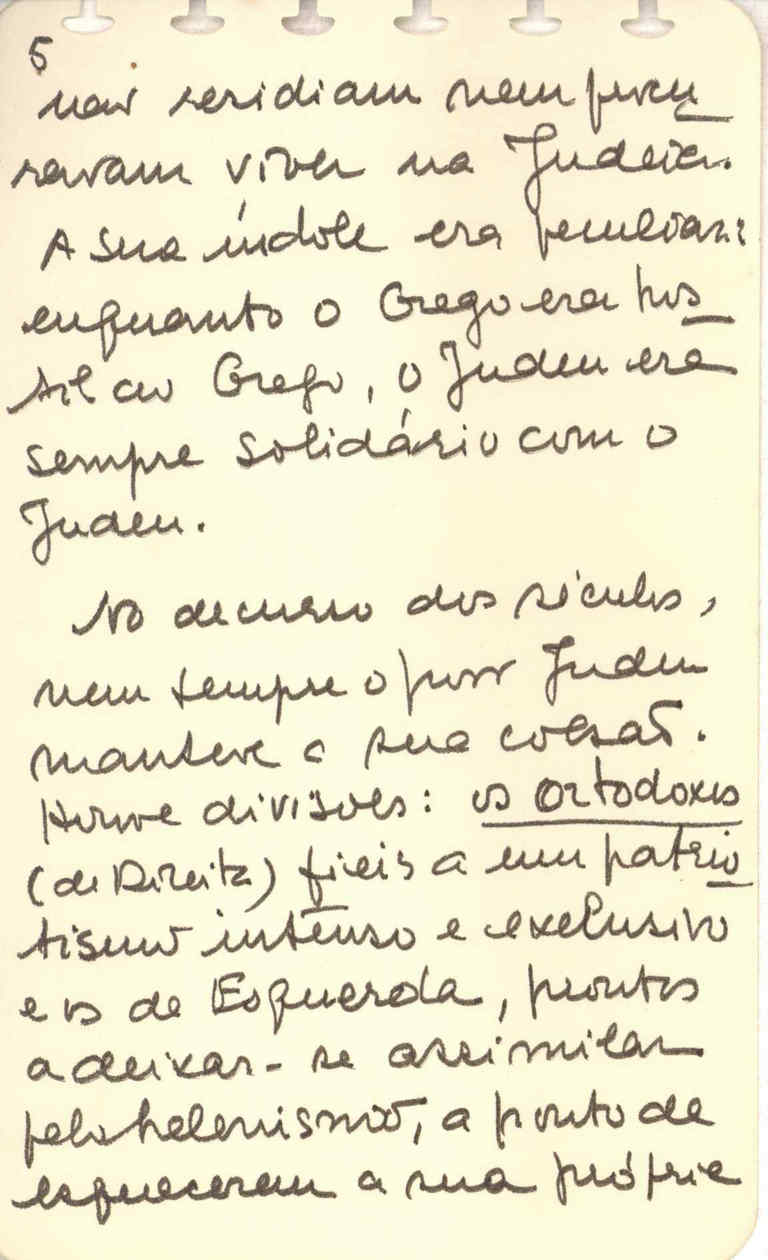 5
não residiam nem procu
ravam viver na Judeia.
A sua índole era peculiar:
enquanto o Grego era hos
til ao Grego, o Judeu era
sempre solidário com o
Judeu.
No decurso dos séculos,
nem sempre o povo Judeu
manteve a sua coesão.
Houve divisões: os ortodoxos
(de Direita) fieis a um patrio
tismo intenso e exclusivo
e os de Esquerda, prontos
a deixar-se assimilar
pelo helenismo, a ponto de
esquecerem a sua própria